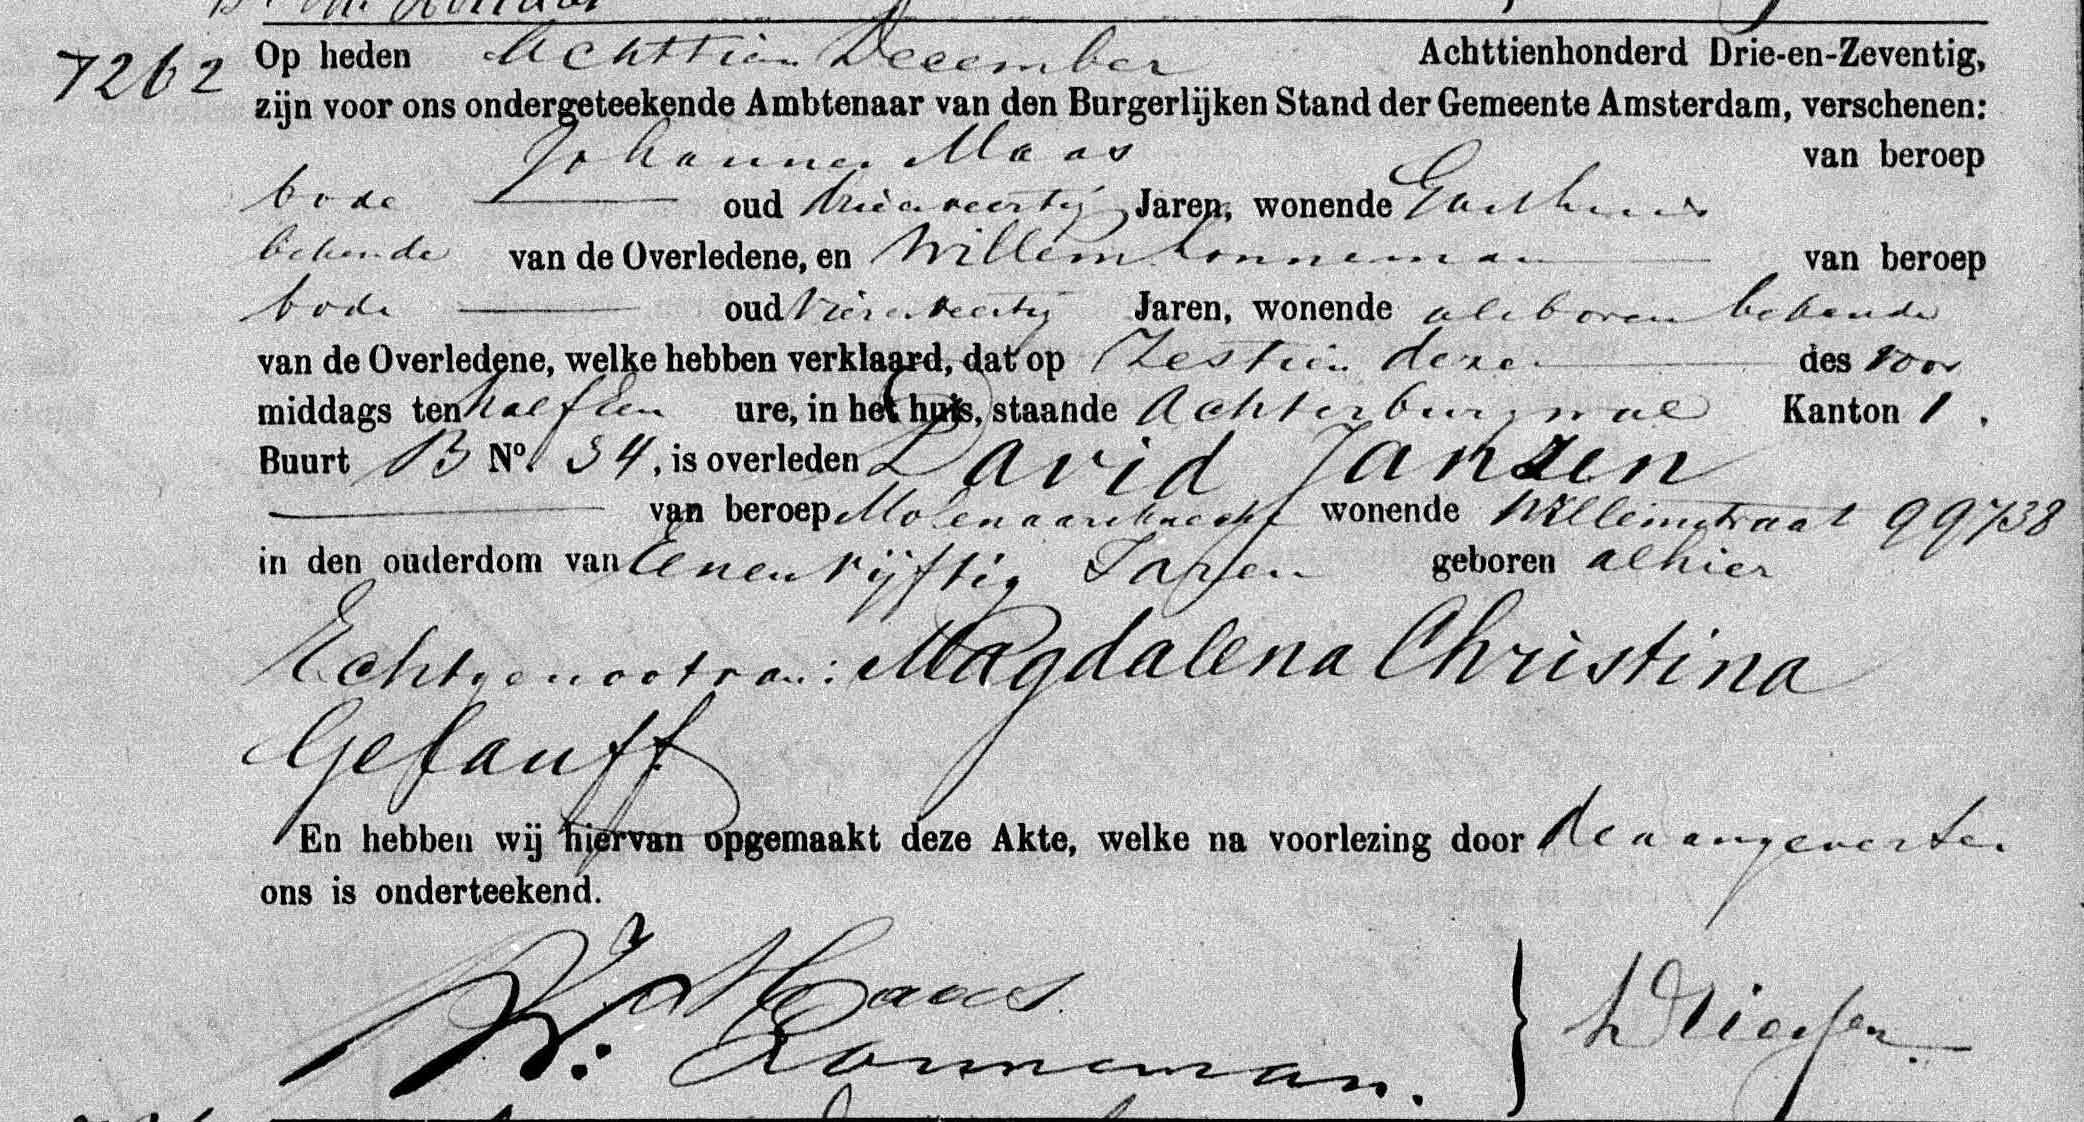 7262
Op heden Achttien December Achttienhonderd Drie-en-Zeventig,
zijn voor ons ondergeteekende Ambtenaar van den Burgerlijken Stand der Gemeente Amsterdam, verschenen:
Johannes Maas van beroep
bode oud drieenveertig Jaren, wonende Gasthuis
bekende van de Overledene, en Willem Konneman van beroep
bode oud vierenveertig Jaren, wonende alsboven bekende
van de Overledene, welke hebben verklaard, dat op Zestien dezer des voor
middags ten half Een ure, in het huis, staande Achterburgwal Kanton 1.
Buurt B No. 34, is overleden David Janzen
van beroep Molenaarsknecht wonende Willemstraat 99738
in den ouderdom van Eenenvijftig Jaren geboren alhier
Echtgenoot van: Magdalena Christina
Gefauff
En hebben wij hiervan opgemaakt deze Akte, welke na voorlezing door de aangevers en
ons is onderteekend.
Maas
W. Konneman.